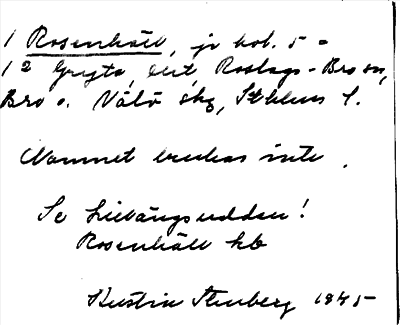 1 Rosenhäll, jo bol. 5 =
1² Gryta, Lert, Roslags-Bro sn,
Bro o. Vätö skg, Sthlms l.
Namnet brukas inte.
Se Lillängsudden!
Rosenhäll hb
Kerstin Stenberg 1945